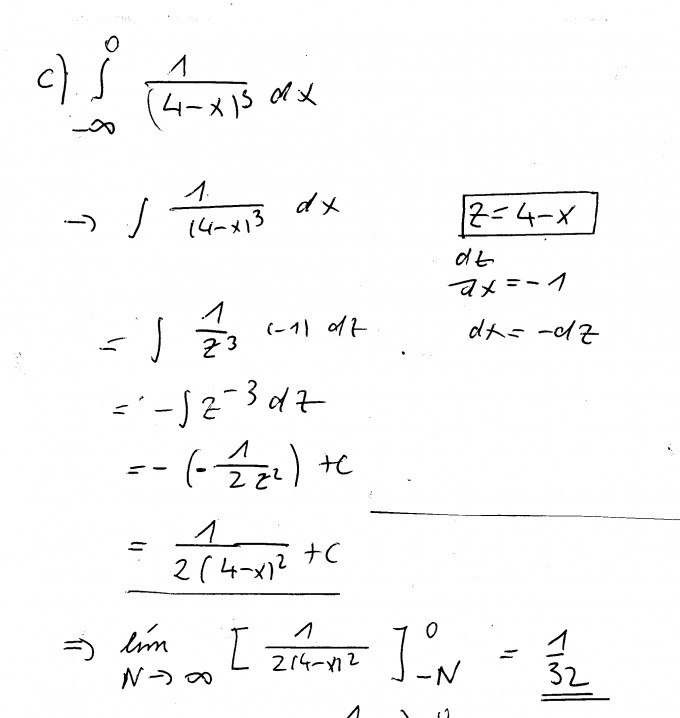 c) ∫_{-∞}^{0} 1/(4-x)^3 dx
→ ∫ 1/(4-x)^3 dx
z = 4-x
dz/dx = -1
dx = -dz
= ∫ 1/z^3 (-1) dz
= -∫ z^{-3} dz
= - (- 1/(2z^2)) + C
= 1/(2(4-x)^2) + C
⇒ lim_{N→∞} [ 1/(2(4-x)^2) ]_{-N}^{0} = 1/32